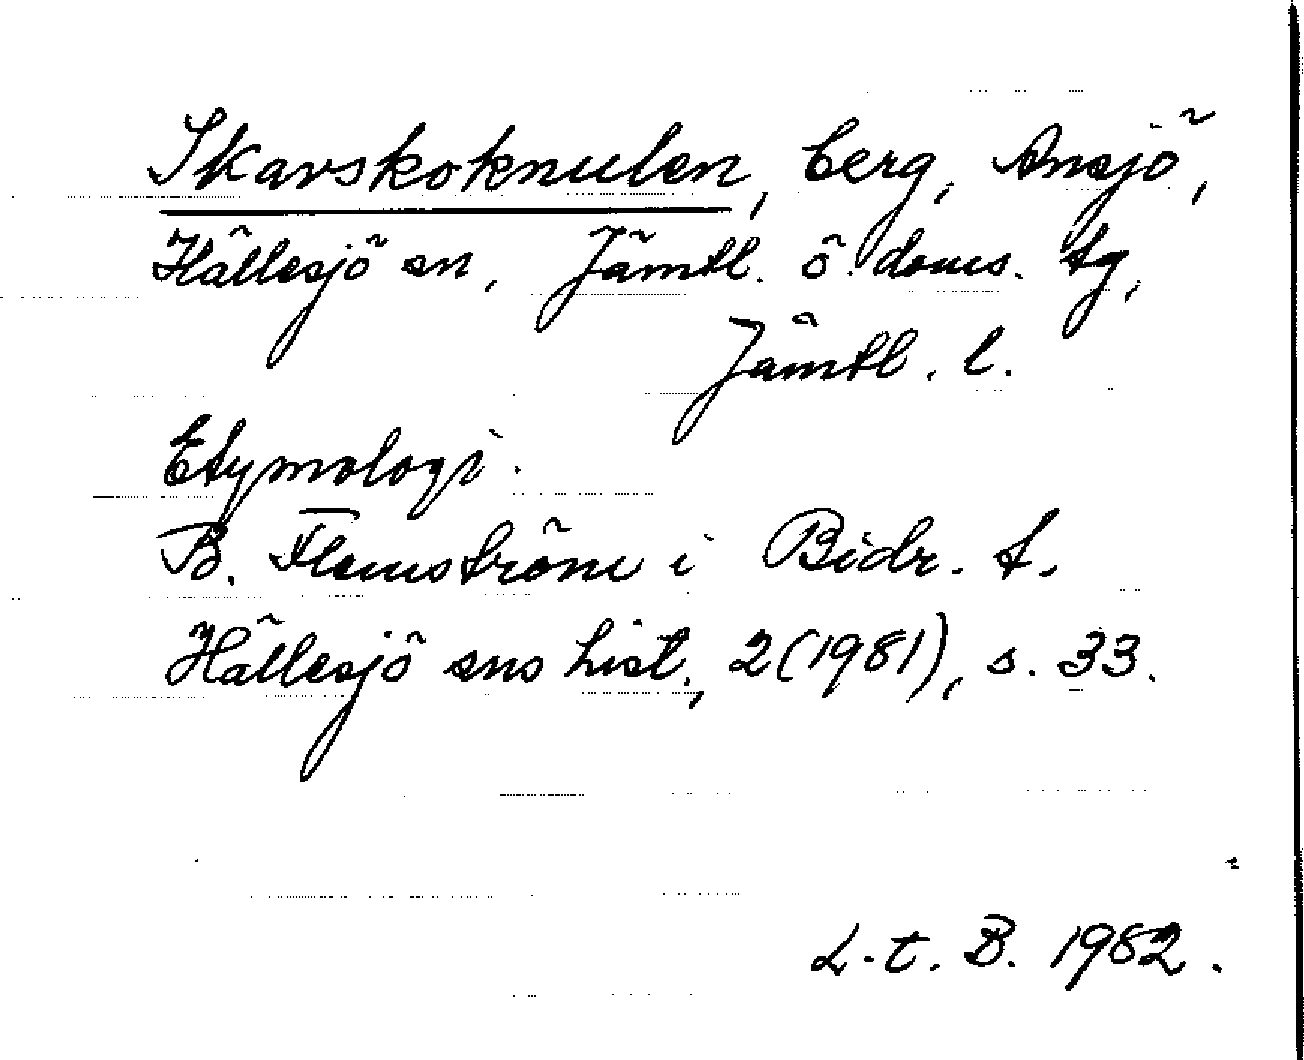 Skavskoknulen, berg, Ansjö,
Hällesjö sn, Jämtl. ö. doms. tg,
Jämtl. l.
Etymologi.
B. Flemström i Bidr. t.
Hällesjö sns hist., 2(1981), s. 33.
L.t.B. 1982.